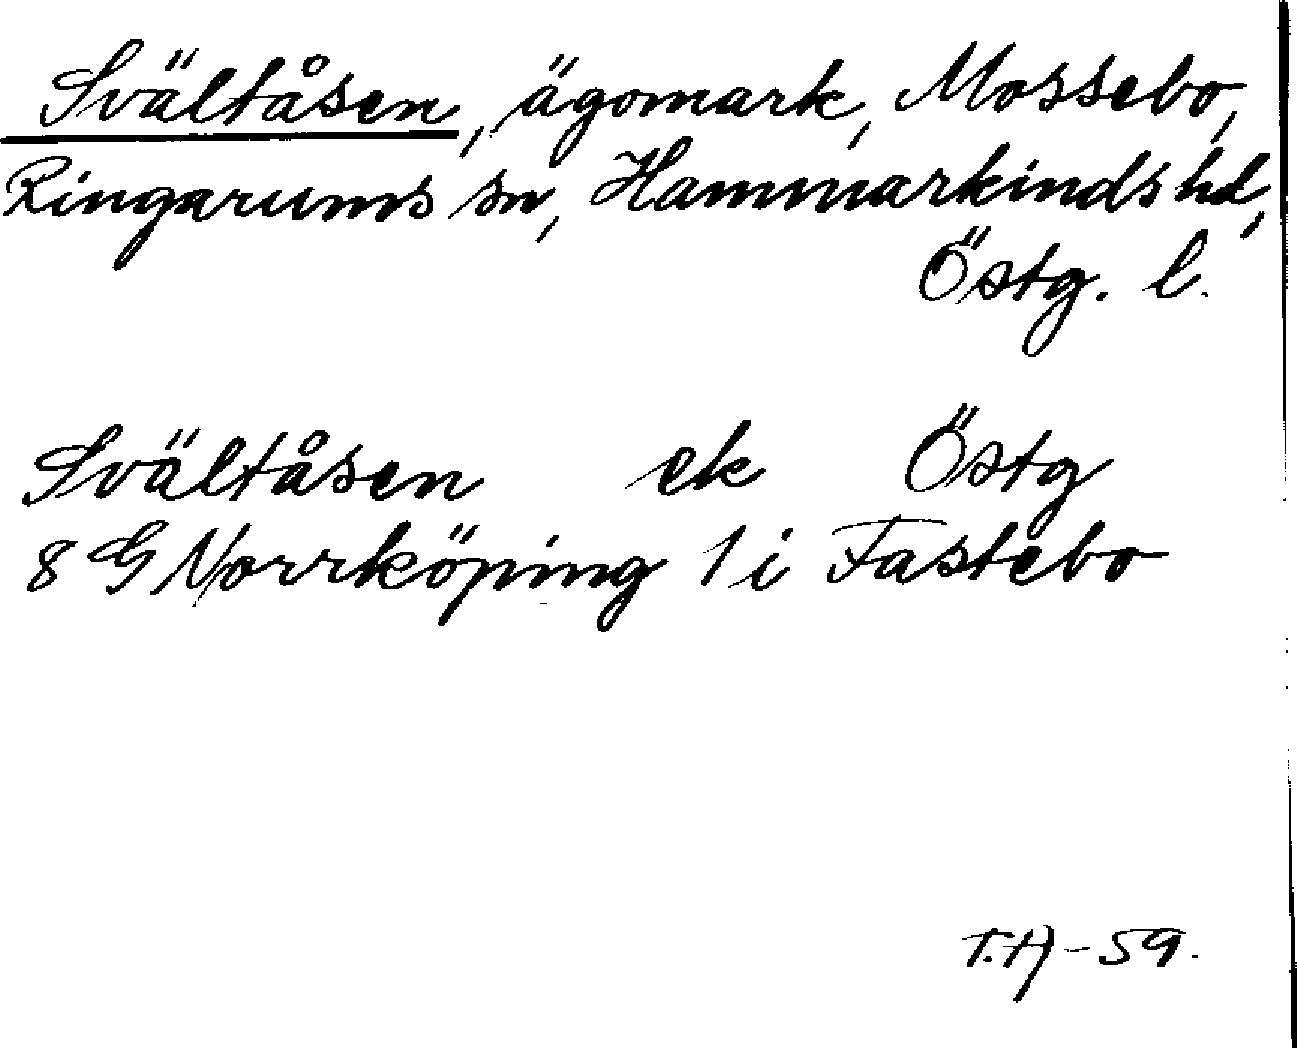 Svältåsen, ägomark, Mossebo,
Ringarums sn, Hammarkinds hd,
Östg. l.
Svältåsen ek Östg
8 G Norrköping 1 i Fastebo
T.H-59.